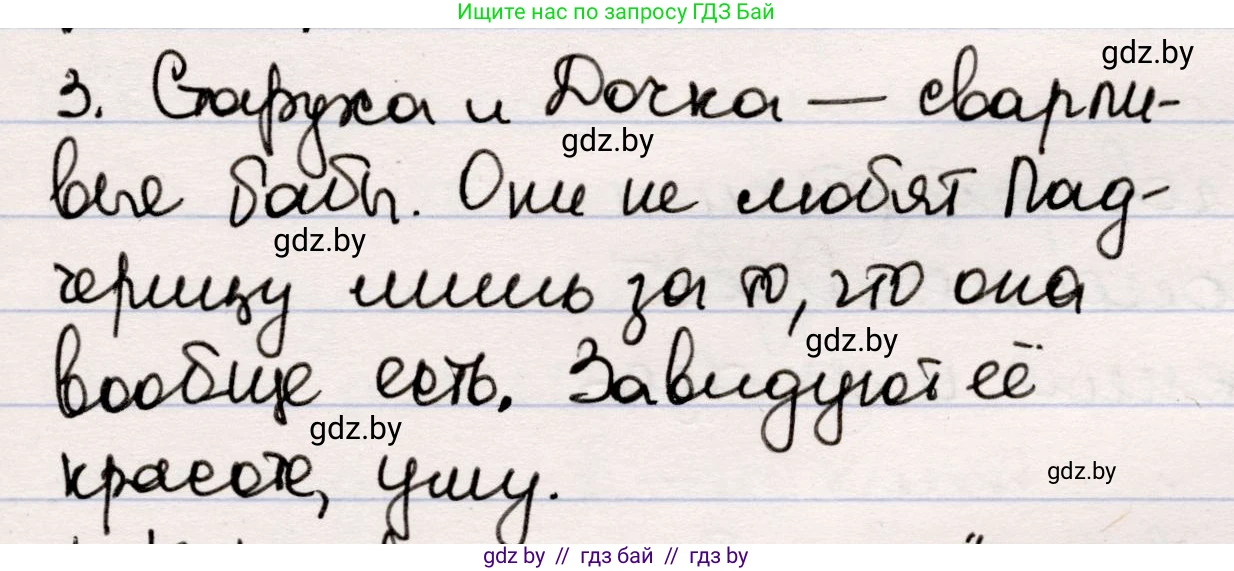 Ищите нас по запросу ГДЗ Бай
gdz.by
3. Старуха и Дочка — сварли-
gdz.by
вые бабы. Они не любят Пад-
gdz.by
черицу лишь за то, что она
gdz.by
вообще есть. Завидуют её
gdz.by
красоте, уму.
gdz.by
gdz by // гдз бай // gdz by